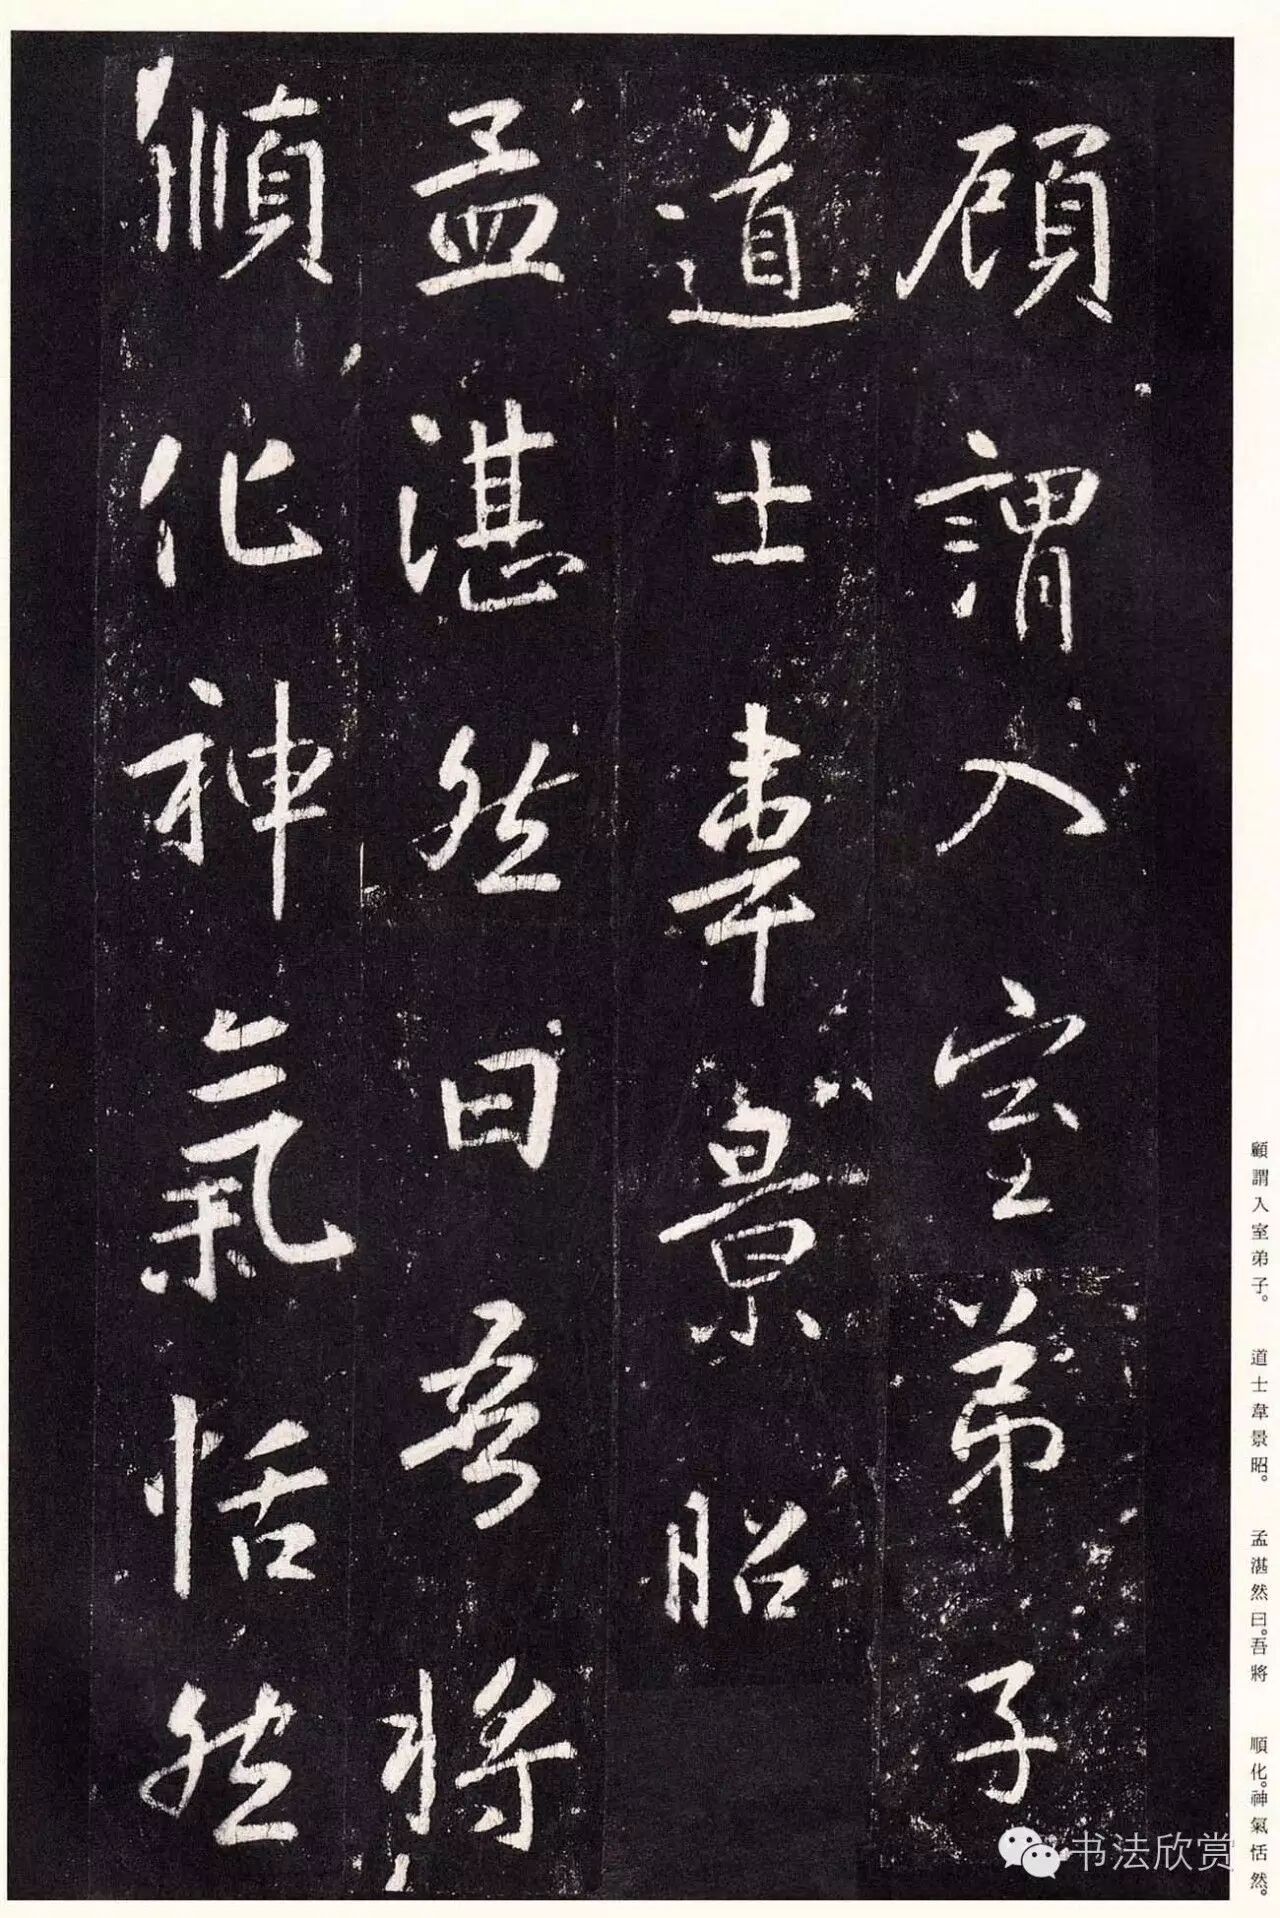 顧謂入室弟子
道士韋景昭
孟湛然曰吾將
順化神氣恬然
顧謂入室弟子。 道士韋景昭。 孟湛然曰。吾將 順化。神氣恬然。
书法欣赏